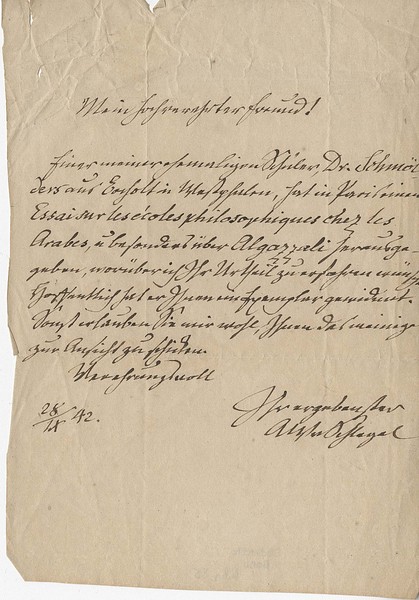 Mein hochverehrter Freund!
Einer meiner ehemaligen Schüler, Dr. Schmöl
ders aus Bocholt in Westphalen, hat in Paris einen
Essai sur les écoles philosophiques chez les
Arabes, u besonders über Algazzali herausge-
geben, worüber ich Ihr Urtheil zu erfahren wünsche
Hoffentlich hat er Ihnen ein Exemplar gewidmet.
Sonst erlauben Sie mir wohl, Ihnen das meinige
zur Ansicht zu schicken.
Verehrungsvoll
Ihr ergebenster
AWvSchlegel
42.